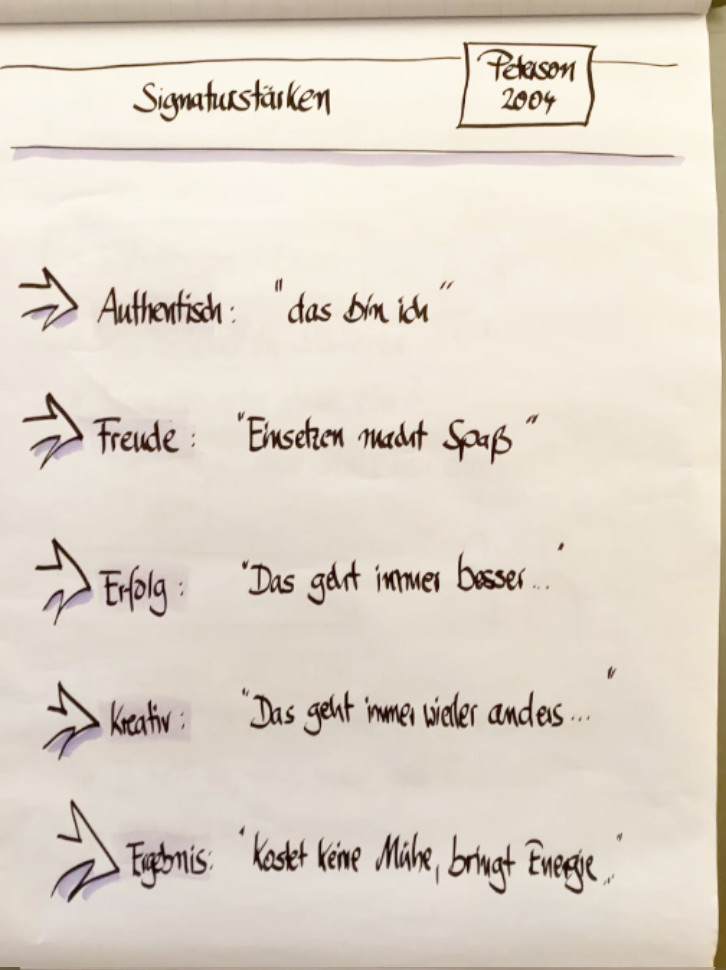 Signaturstärken
Peterson
2004
Authentisch: "das bin ich"
Freude: "Einsetzen macht Spaß"
Erfolg: "Das geht immer besser..."
Kreativ: "Das geht immer wieder anders..."
Ergebnis: "Kostet keine Mühe, bringt Energie..."